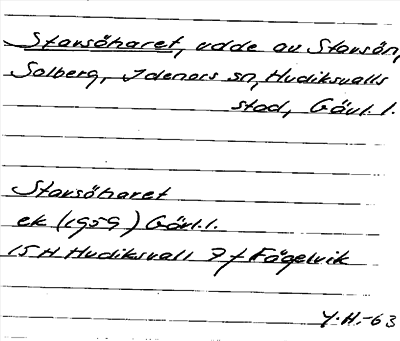 Starsöharet, udde av Starsön,
Solberg, Idenors sn, Hudiksvalls
stad, Gävl. l.
Starsöharet
ek (1959) Gävl. l.
15H Hudiksvall 9 f Fågelvik
Y.H.-63